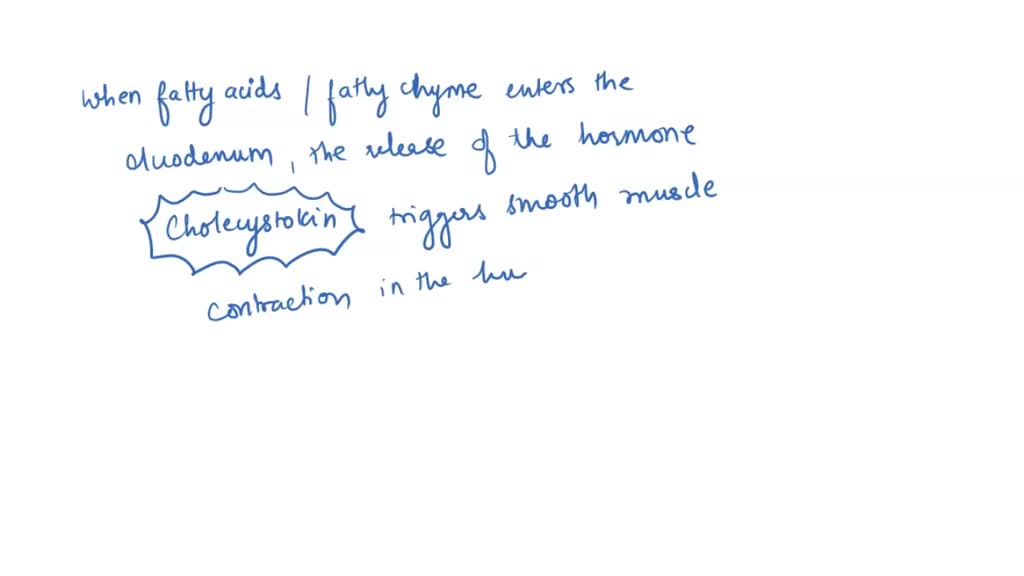 When fatty acids / fatty chyme enters the
duodenum, the release of the hormone
Cholecystokin triggers smooth muscle
contraction in the hu